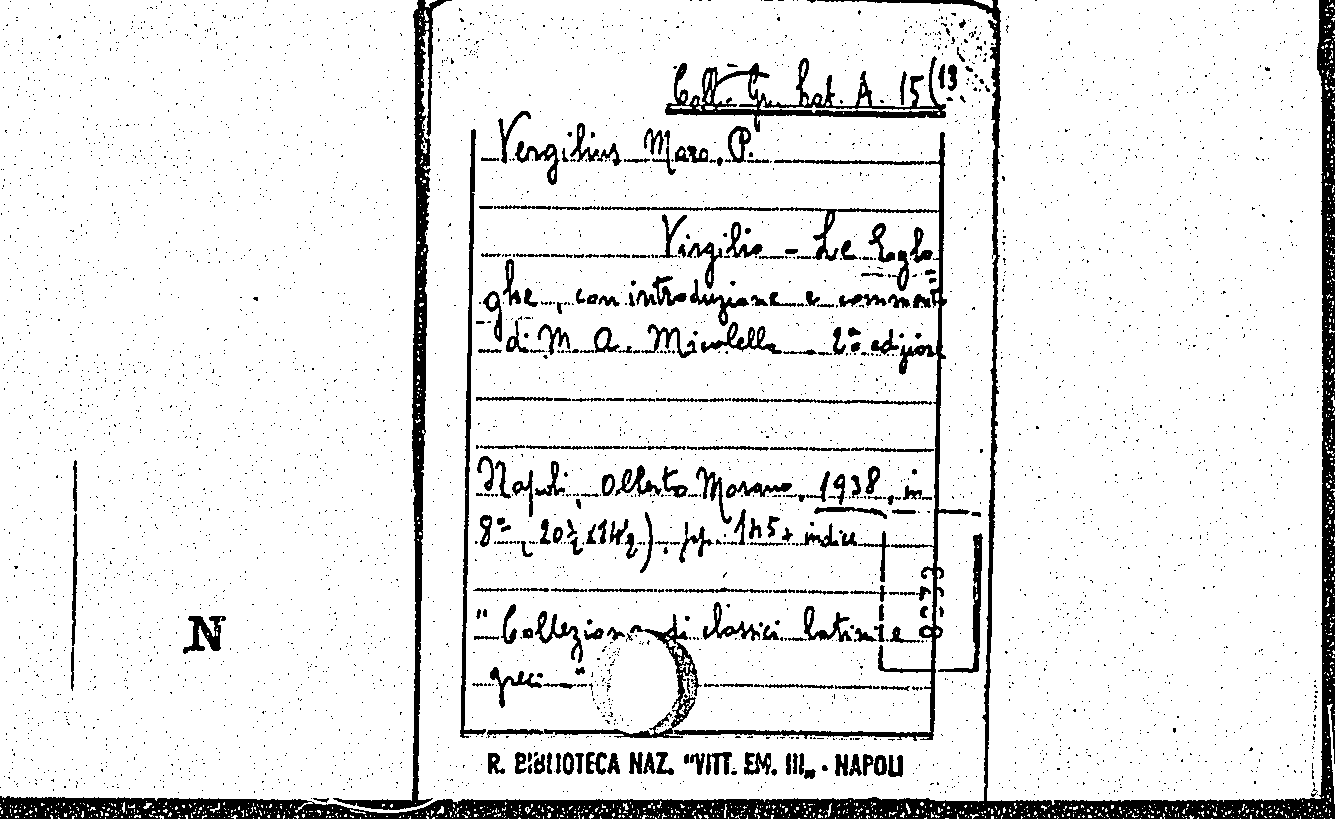 Coll. Gr. Lat. A. 15 (13
Vergilius Maro, P.
Virgilio - Le Eglo=
ghe, con introduzione e commento
di M. A. Micalella. 2ª edizione
Napoli, Alberto Morano, 1938, in
8º, 20½ x 14½), pp. 145 + indice
"Collezione di classici latini e
greci -"
N
R. BIBLIOTECA NAZ. "VITT. EM. III„ - NAPOLI